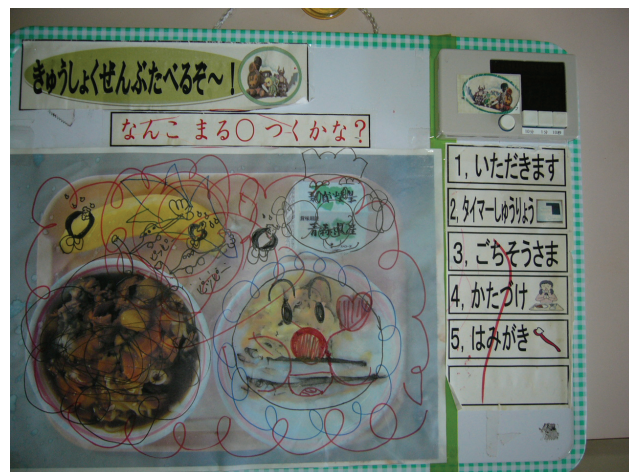 きゅうしょくぜんぶたべるぞ〜！
なんこ まる〇 つくかな？
1, いただきます
2, タイマーしゅうりょう
3, ごちそうさま
4, かたづけ
5, はみがき